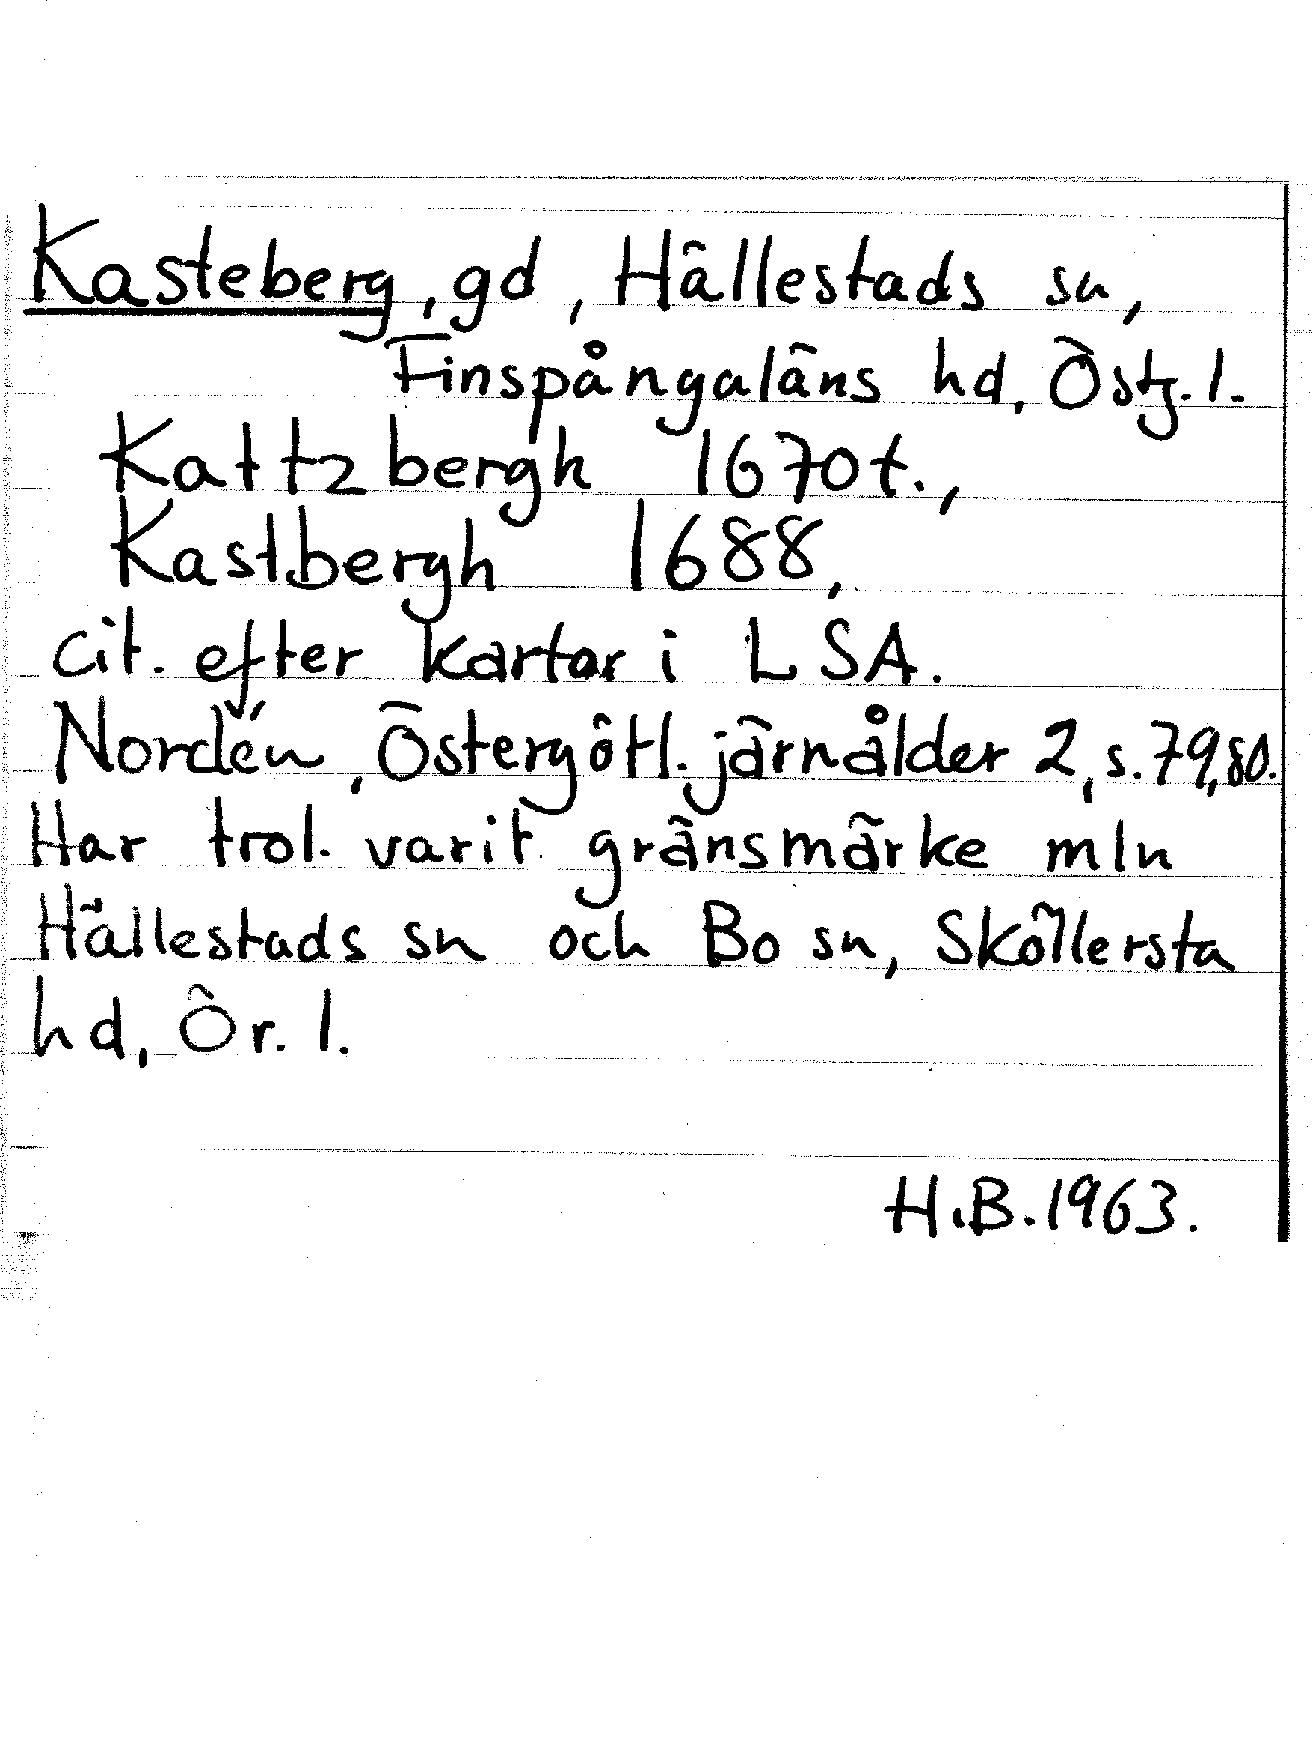 Kasteberg, gd, Hällestads sn,
Finspångaläns hd, Östg. l.
Kattzbergh 1670 t.,
Kastbergh 1688,
cit. efter kartor i LSA.
Nordén, Östergötl. järnålder 2, s. 79, 80.
Har trol. varit gränsmärke mln
Hällestads sn och Bo sn, Sköllersta
hd, Ör. l.
H.B. 1963.